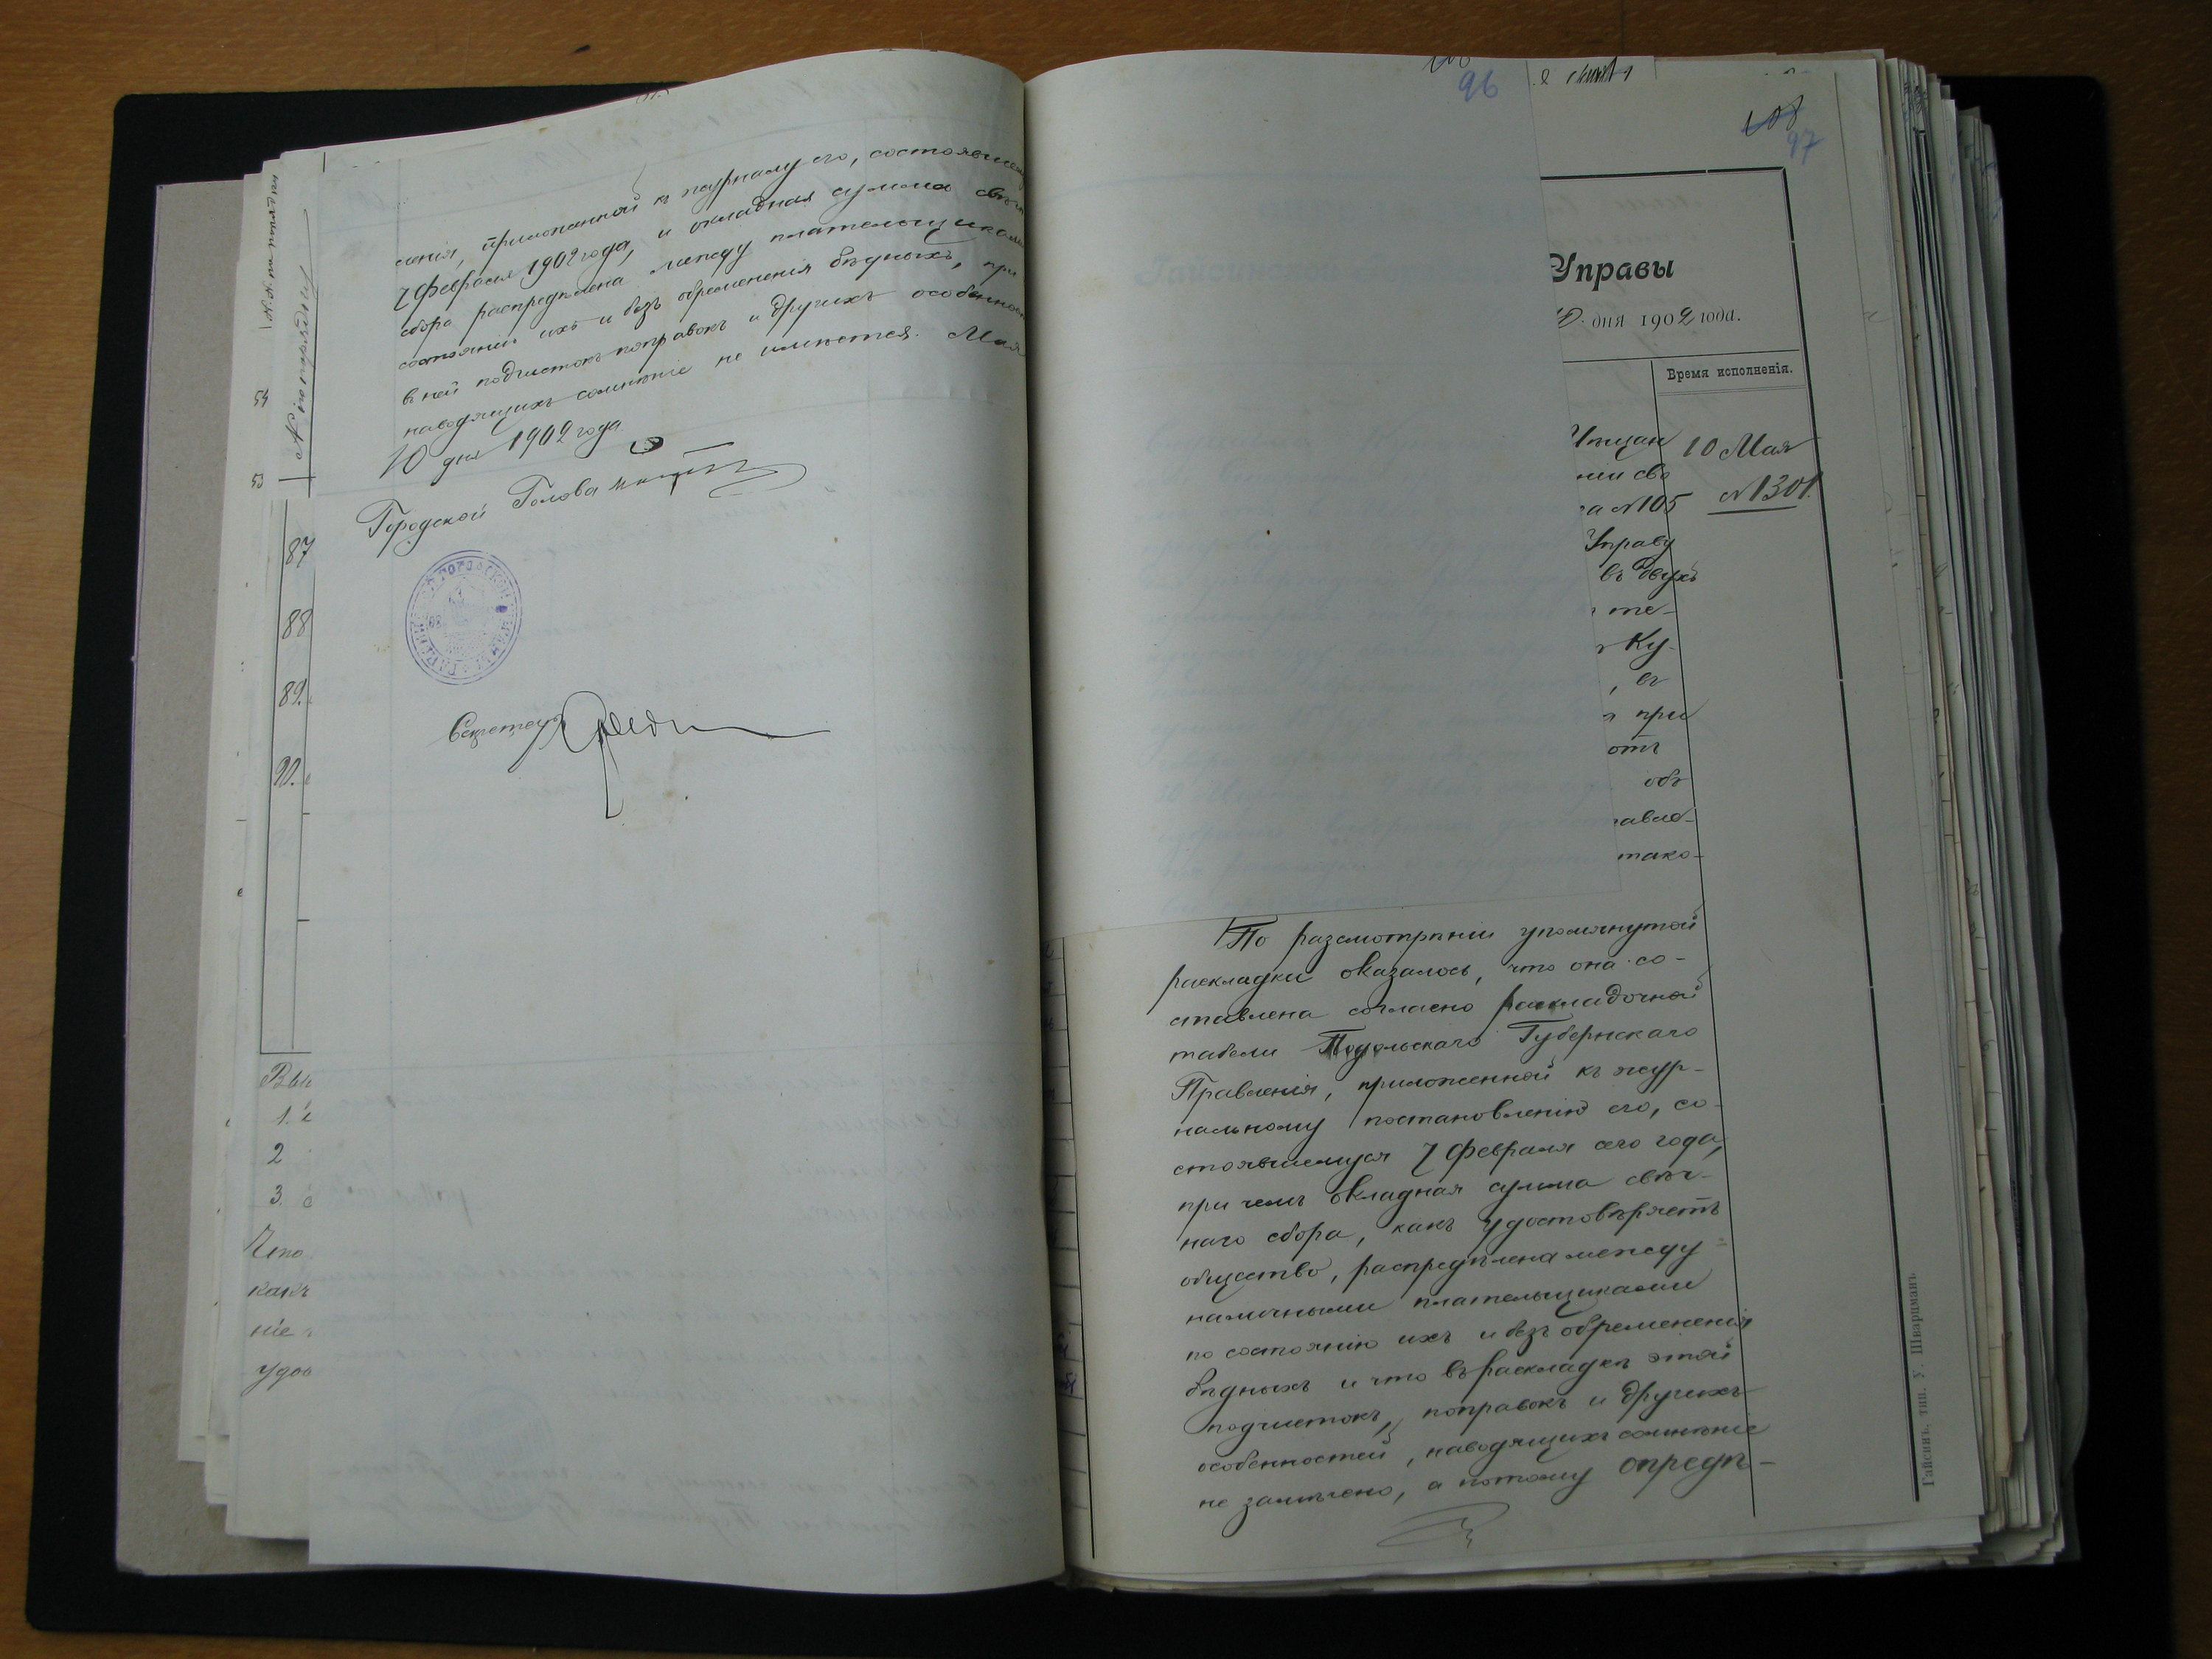 ленія, приложенной къ журналу его, состоявшему
7 Февраля 1902 года, и окладная сумма свѣчн
сбора распредѣлена между плательщиками
состоянію ихъ и безъ обремененія бѣдныхъ, при
въ ней подчистокъ поправокъ и другихъ особенност
наводящихъ сомнѣніе не имѣется. Мая
10 дня 1902 года
Городской Голова
Секретарь
87
88
89.
90.
1.
2
3.
Что
какъ
ніе
удос
96
108
97
Управы
10 дня 1902 года.
Время исполненія.
Мѣщан
10 Мая
ніи сво
№1301
а №105
Управу
въ двухъ
те-
Ку-
, въ
при
отъ
объ
авле-
тако-
По разсмотрѣніи упомянутой
раскладки оказалось, что она со-
ставлена согласно раскладочной
табели Подольскаго Губернскаго
Правленія, приложенной къ жур-
нальному постановленію его, со-
стоявшемуся 7 Февраля сего года,
при чемъ окладная сумма свѣч-
наго сбора, какъ удостовѣряетъ
общество, распредѣлена между
наличными плательщиками
по состоянію ихъ и безъ обремененія
бѣдныхъ и что въ раскладкѣ этой
подчистокъ, поправокъ и другихъ
особенностей, наводящихъ сомнѣніе
не замѣчено, а потому опредѣ-
Гайсинъ, тип. У. Шварцманъ